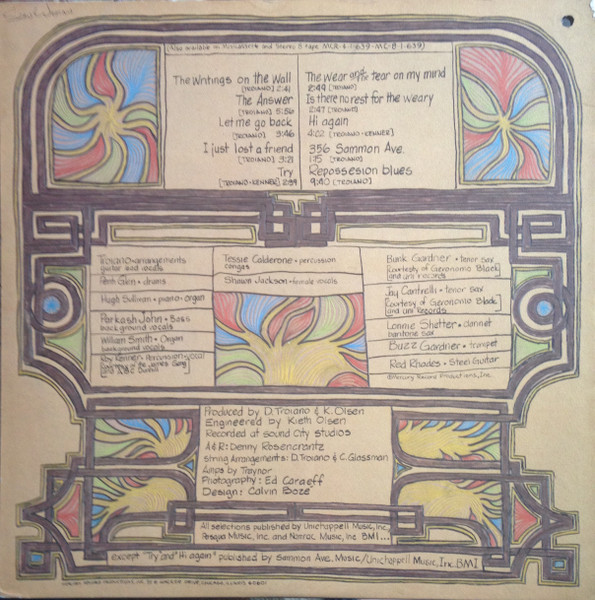 (Also available on Musicassette and Stereo 8 tape MCR-4-1-639-MC-8-1-639)
The Writings on the Wall
[TROIANO] 2:41
The Answer
[TROIANO] 5:56
Let me go back
[TROIANO] 3:46
I just lost a friend
[TROIANO] 3:21
Try
[TROIANO-KENNER] 2:59
The wear and the tear on my mind
2:49 [TROIANO]
Is there no rest for the weary
2:47 [TROIANO]
Hi again
4:02 [TROIANO-KENNER]
356 Sammon Ave.
1:15 [TROIANO]
Repossesion blues
9:40 [TROIANO]
Troiano • arrangements
guitar and vocals
Penti Glen • drums
Hugh Sullivan • piano • organ
Porkash John • Bass
background vocals
William Smith • Organ
background vocals
Roy Kenner • Percussion • vocal
Tessie Calderone • percussion
congas
Shawn Jackson • female vocals
Bunk Gardner • tenor sax
[Courtesty of Geronomo Black]
and uni records
Jay Cantrelli • tenor sax
[Courtesy of Geronomo Black]
and uni Records
Lonnie Shetter • clarinet
baritone sax
Buzz Gardner • trumpet
Red Rhodes • Steel Guitar
©Mercury Record Productions, Inc.
Produced by D. Troiano & K. Olsen
Engineered by Kieth Olsen
Recorded at sound City Studios
A & R: Denny Rosencrantz
String Arrangements: D. Troiano & C. Glassman
Amps by Traynor
Photography: Ed Caraeff
Design: Calvin Boze
All selections published by Unichappell Music, Inc.,
Music, Inc. and Music, Inc BMI...
except "Try" and "Hi again" published by Sammon Ave. Music/Unichappell Music, Inc. BMI
MERCURY RECORD PRODUCTIONS, INC. 35 E. WACKER DRIVE, CHICAGO, ILLINOIS 60601